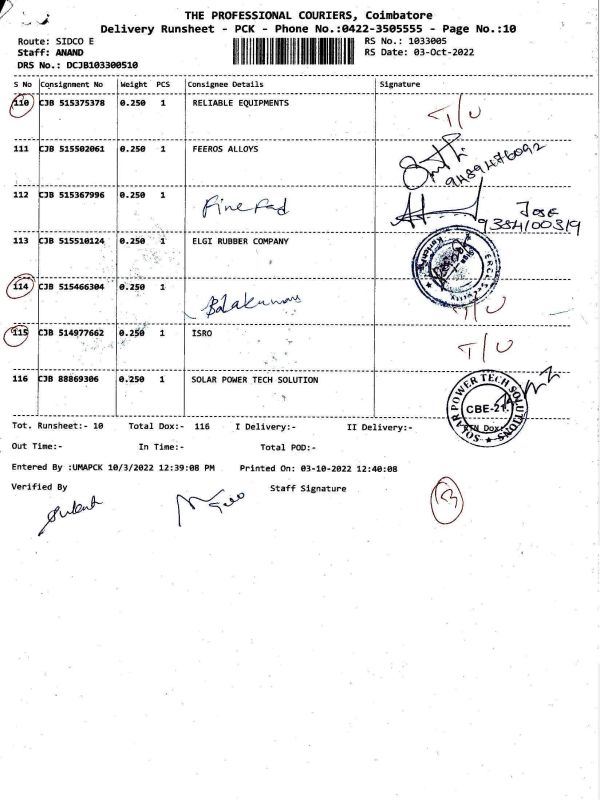 THE PROFESSIONAL COURIERS, Coimbatore
Delivery Runsheet - PCK - Phone No.:0422-3505555 - Page No.:10
Route: SIDCO E
RS No.: 1033005
Staff: ANAND
RS Date: 03-Oct-2022
DRS No.: DCJB103300510
S No Consignment No Weight PCS Consignee Details Signature
110 CJB 515375378 0.250 1 RELIABLE EQUIPMENTS T/U
111 CJB 515502061 0.250 1 FEEROS ALLOYS
112 CJB 515367996 0.250 1 Jose
113 CJB 515510124 0.250 1 ELGI RUBBER COMPANY
114 CJB 515466304 0.250 1 Balakumar T/U
115 CJB 514977662 0.250 1 ISRO T/U
116 CJB 88869306 0.250 1 SOLAR POWER TECH SOLUTION
SOLAR POWER TECH SOLUTIONS
CBE-21.
Tot. Runsheet:- 10 Total Dox:- 116 I Delivery:- II Delivery:- NTN Dox:-
Out Time:- In Time:- Total POD:-
Entered By :UMAPCK 10/3/2022 12:39:08 PM Printed On: 03-10-2022 12:40:08
Verified By Staff Signature
13